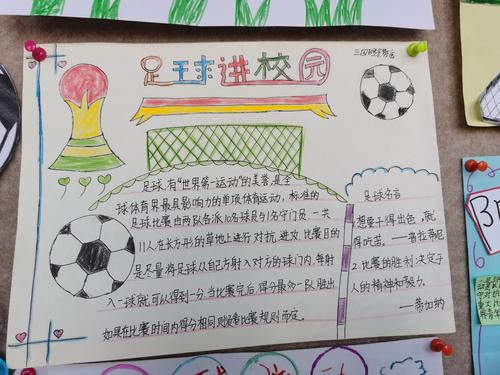 足球进校园
足球,有“世界第一运动”的美誉,是全
球体育界最具影响力的单项体育运动,标准的
足球比赛由两队各派10名球员与1名守门员,一共
11人在长方形的草地上进行对抗、进攻,比赛目的
是尽量将足球从自己方射入对方的球门内,每射
入一球就可以得到一分,当比赛完后,得分最多一队胜出,
如果在比赛时间内得分相同则须看比赛规则而定。
足球名言
1.想要干得出色,就
得吃苦。——普拉蒂尼
2.比赛的胜利决定于
人的精神和毅力。
——蒂加纳